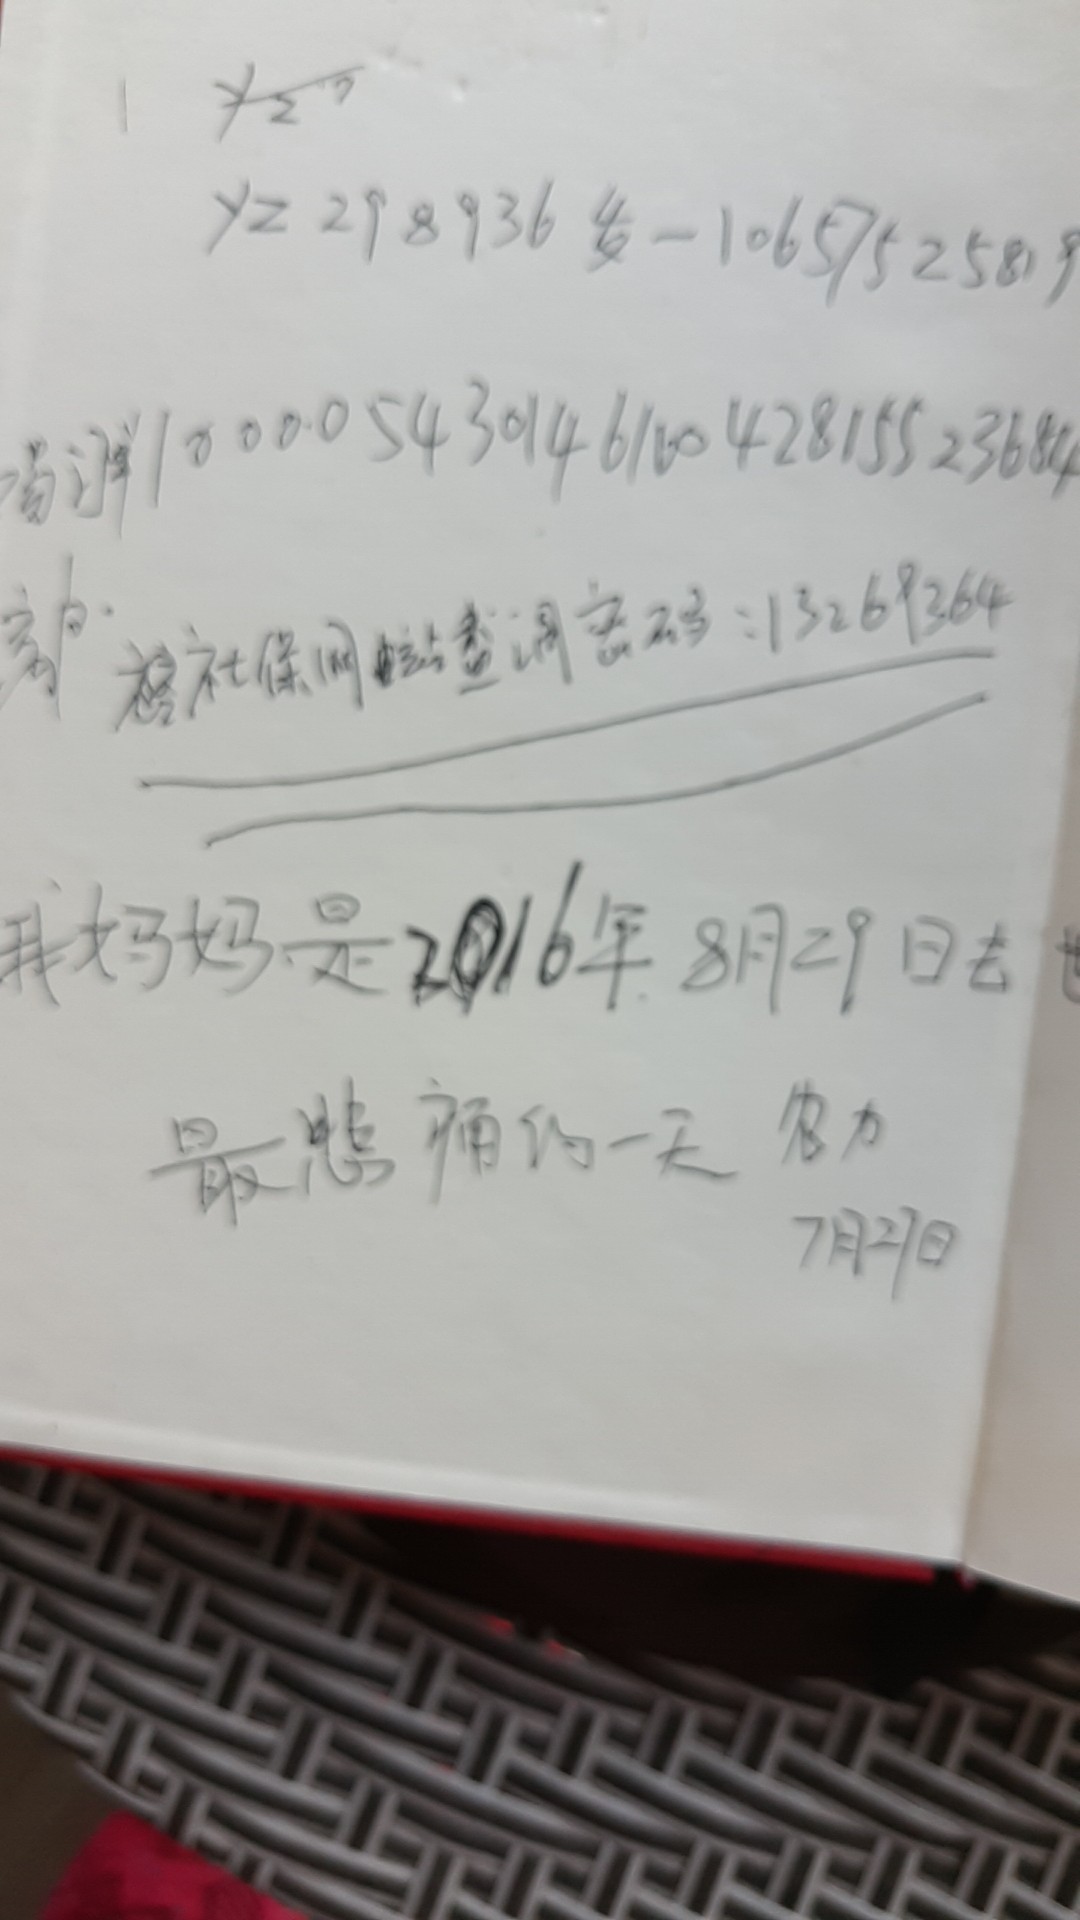 YZ 298936 发-1065752589
100000543014610042815523684
社保网站查询密码:13269364
我妈妈是2016年8月29日去世
最悲痛的一天
7月27日